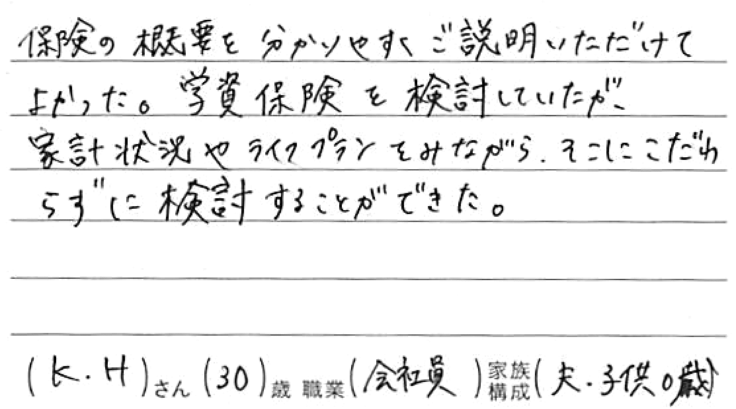 保険の概要を分かりやすくご説明いただけて
よかった。学資保険を検討していたが、
家計状況やライフプランをみながら、そこにこだわ
らずに検討することができた。
(K.H)さん(30)歳 職業(会社員)家族構成(夫・子供0歳)